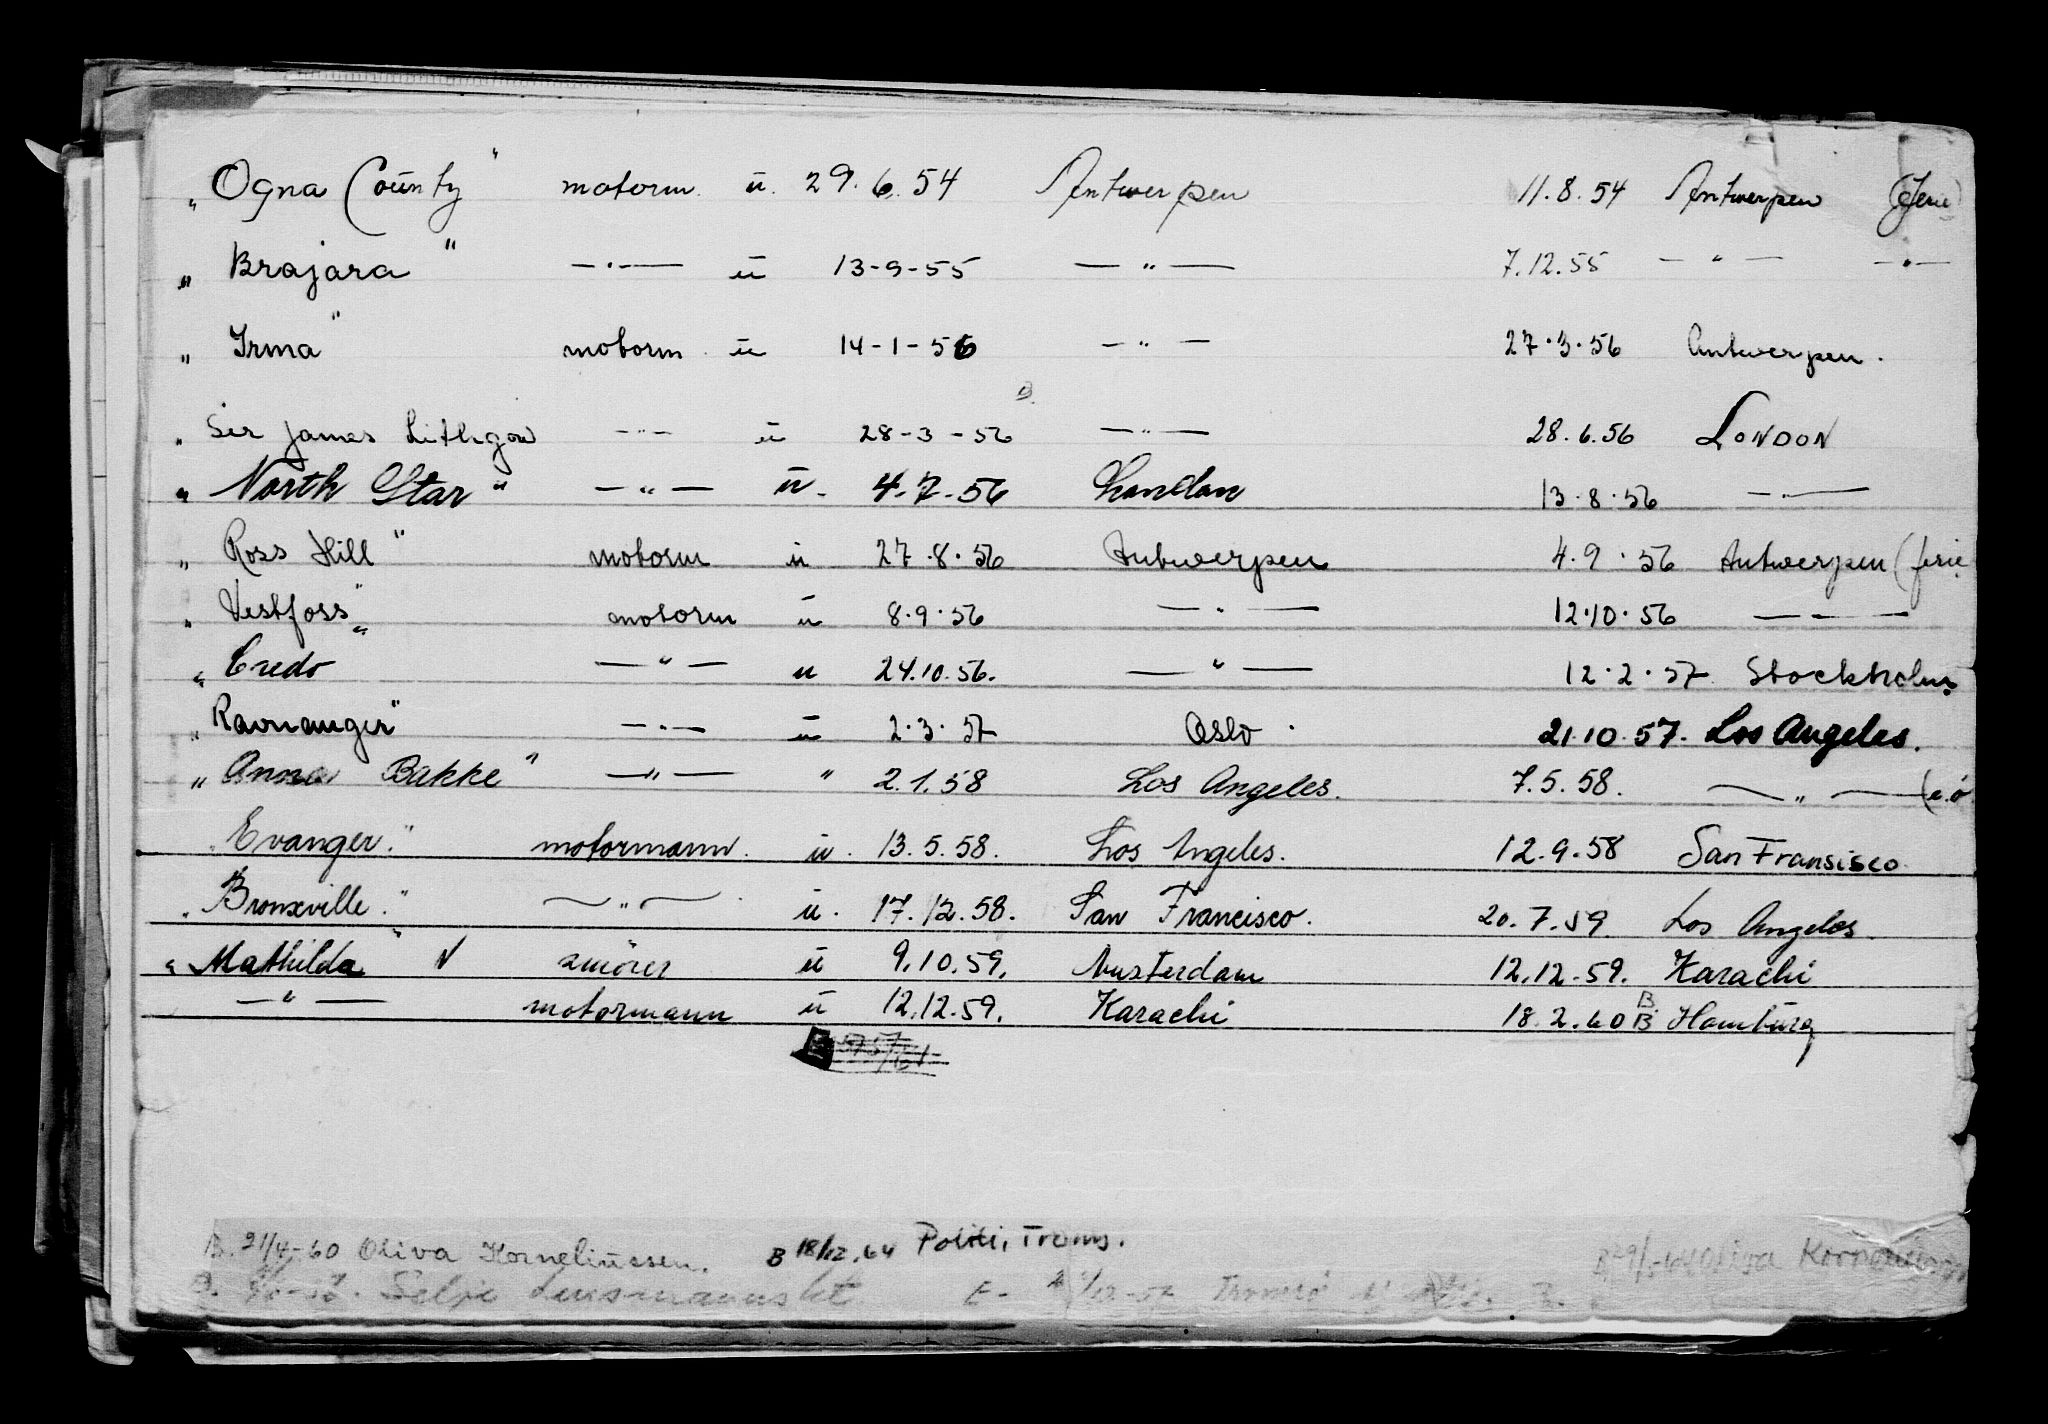 „ Ogna County" motorm. u. 29.6.54 Antwerpen 11.8.54 Antwerpen (ferie)
„ Brajara" —"— u 13-9-55 —"— 7.12.55 —"— —"—
„ Irma" motorm. u 14-1-56 —"— 27.3.56 Antwerpen.
B.
„ Sir James Lithgow —"— u 28-3-56 —"— 28.6.56 LONDON
„ North Star" —"— u. 4.7.56 London 13.8.56 —"—
„ Ross Hill" motorm u 27.8.56 Antwerpen 4.9.56 Antwerpen (ferie
„ Vestfoss" motorm u 8.9.56 —"— 12.10.56 —"—
„ Credo" —"— u 24.10.56. —"— 12.2.57 Stockholm
„ Ravnanger" —"— u 2.3.57 Oslo. 21.10.57. Los Angeles.
„ Anna Bakke" —"— " 2.1.58 Los Angeles. 7.5.58. —"—
„ Evanger". motormann. u. 13.5.58. Los Angeles. 12.9.58 San Fransisco.
„ Bronxville". —"— u. 17.12.58. San Francisco. 20.7.59. Los Angeles.
„ Mathilda" N smörer u 9.10.59. Amsterdam 12.12.59. Karachi
—"— motormann u 12.12.59. Karachi 18.2.60 B B Hamburg
B. 21/4-60 Oliva Korneliussen. B 18/12.64 Politi, Troms.